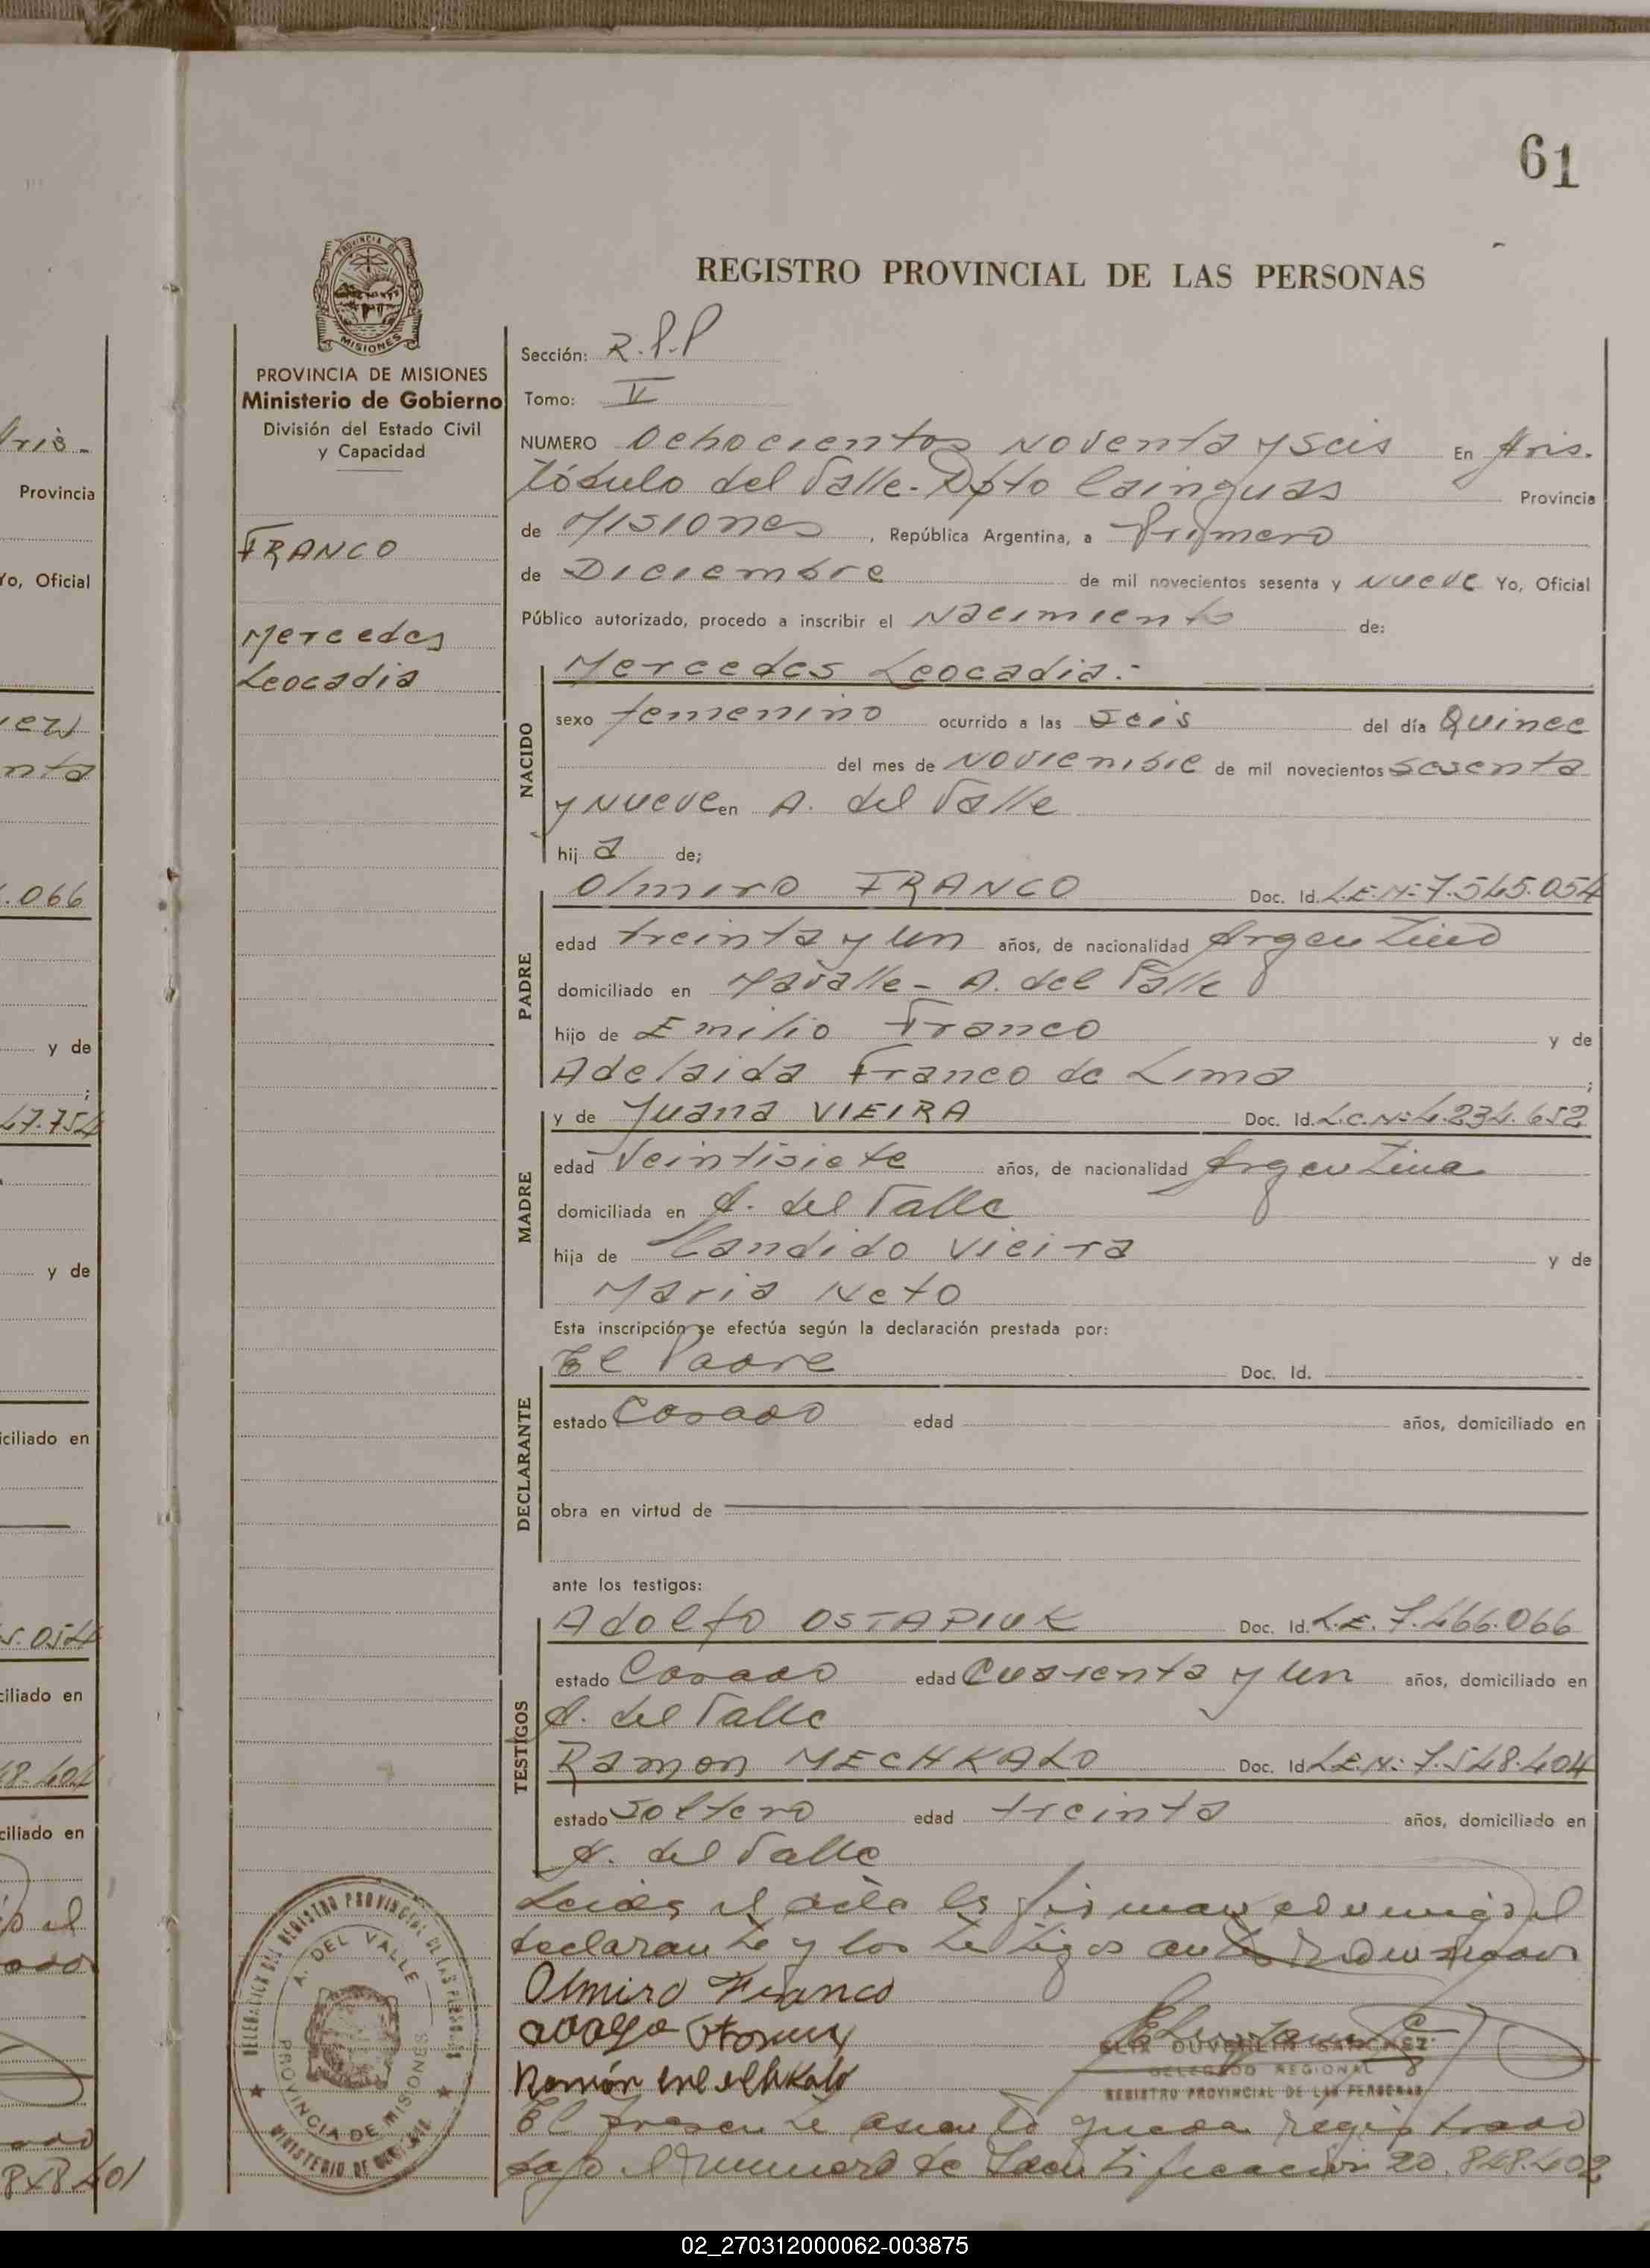 61
REGISTRO PROVINCIAL DE LAS PERSONAS
PROVINCIA DE MISIONES
Ministerio de Gobierno
División del Estado Civil
y Capacidad
FRANCO
Mercedes
Leocadia
Sección: R.P.P
Tomo: V
NUMERO Ochocientos Noventa y seis En Aris-
tóbulo del Valle-Dpto Cainguas Provincia
de Misiones, República Argentina, a Primero
de Diciembre de mil novecientos sesenta y nueve Yo, Oficial
Público autorizado, procedo a inscribir el Nacimiento de:
NACIDO
Mercedes Leocadia.-
sexo femenino ocurrido a las seis del día Quince
del mes de Noviembre de mil novecientos sesenta
y Nueve en A. del Valle
hij a de;
PADRE
Olmiro FRANCO Doc. Id. L.E.N: 7.545.054
edad treinta y un años, de nacionalidad Argentino
domiciliado en Mavalle - A. del Valle
hijo de Emilio Franco y de
Adelaida Franco de Lima ;
MADRE
y de Juana VIEIRA Doc. Id. L.C.N: 4.234.652
edad Veintisiete años, de nacionalidad Argentina
domiciliada en A. del Valle
hija de Candido Vieira y de
Maria Neto
Esta inscripción se efectúa según la declaración prestada por:
DECLARANTE
El Padre Doc. Id.
estado Casado edad años, domiciliado en
obra en virtud de
ante los testigos:
TESTIGOS
Adolfo OSTAPIUK Doc. Id. L.E. 7.466.066
estado Casado edad Cuarenta y un años, domiciliado en
A. del Valle
Ramon MECHKALO Doc. Id. L.E.N: 7.548.404
estado Soltero edad treinta años, domiciliado en
A. del Valle
Leida el acta la firman conmigo el
declarante y los testigos
Olmiro Franco
Ramón Mechkalo
DELEGADO REGIONAL
REGISTRO PROVINCIAL DE LAS PERSONAS
El presente asiento queda registrado
bajo el numero de Identificacion 20.848.402
DELEGACION DEL REGISTRO PROVINCIAL DE LAS PERSONAS
A. DEL VALLE
PROVINCIA DE MISIONES
MINISTERIO DE GOBIERNO
02_270312000062-003875